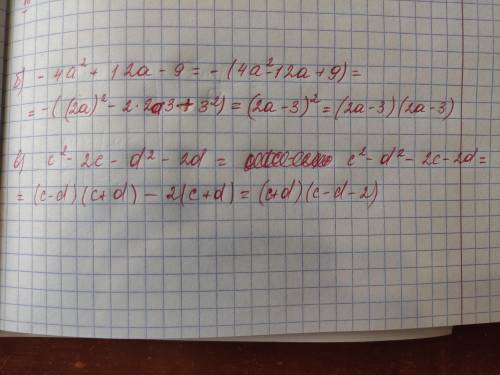 б) - 4a² + 12a - 9 = - (4a² - 12a + 9) =
= - ((2a)² - 2 · 2a · 3 + 3²) = (2a - 3)² = (2a - 3)(2a - 3)
в) c² - 2c - d² - 2d = c² - d² - 2c - 2d =
= (c - d)(c + d) - 2(c + d) = (c + d)(c - d - 2)